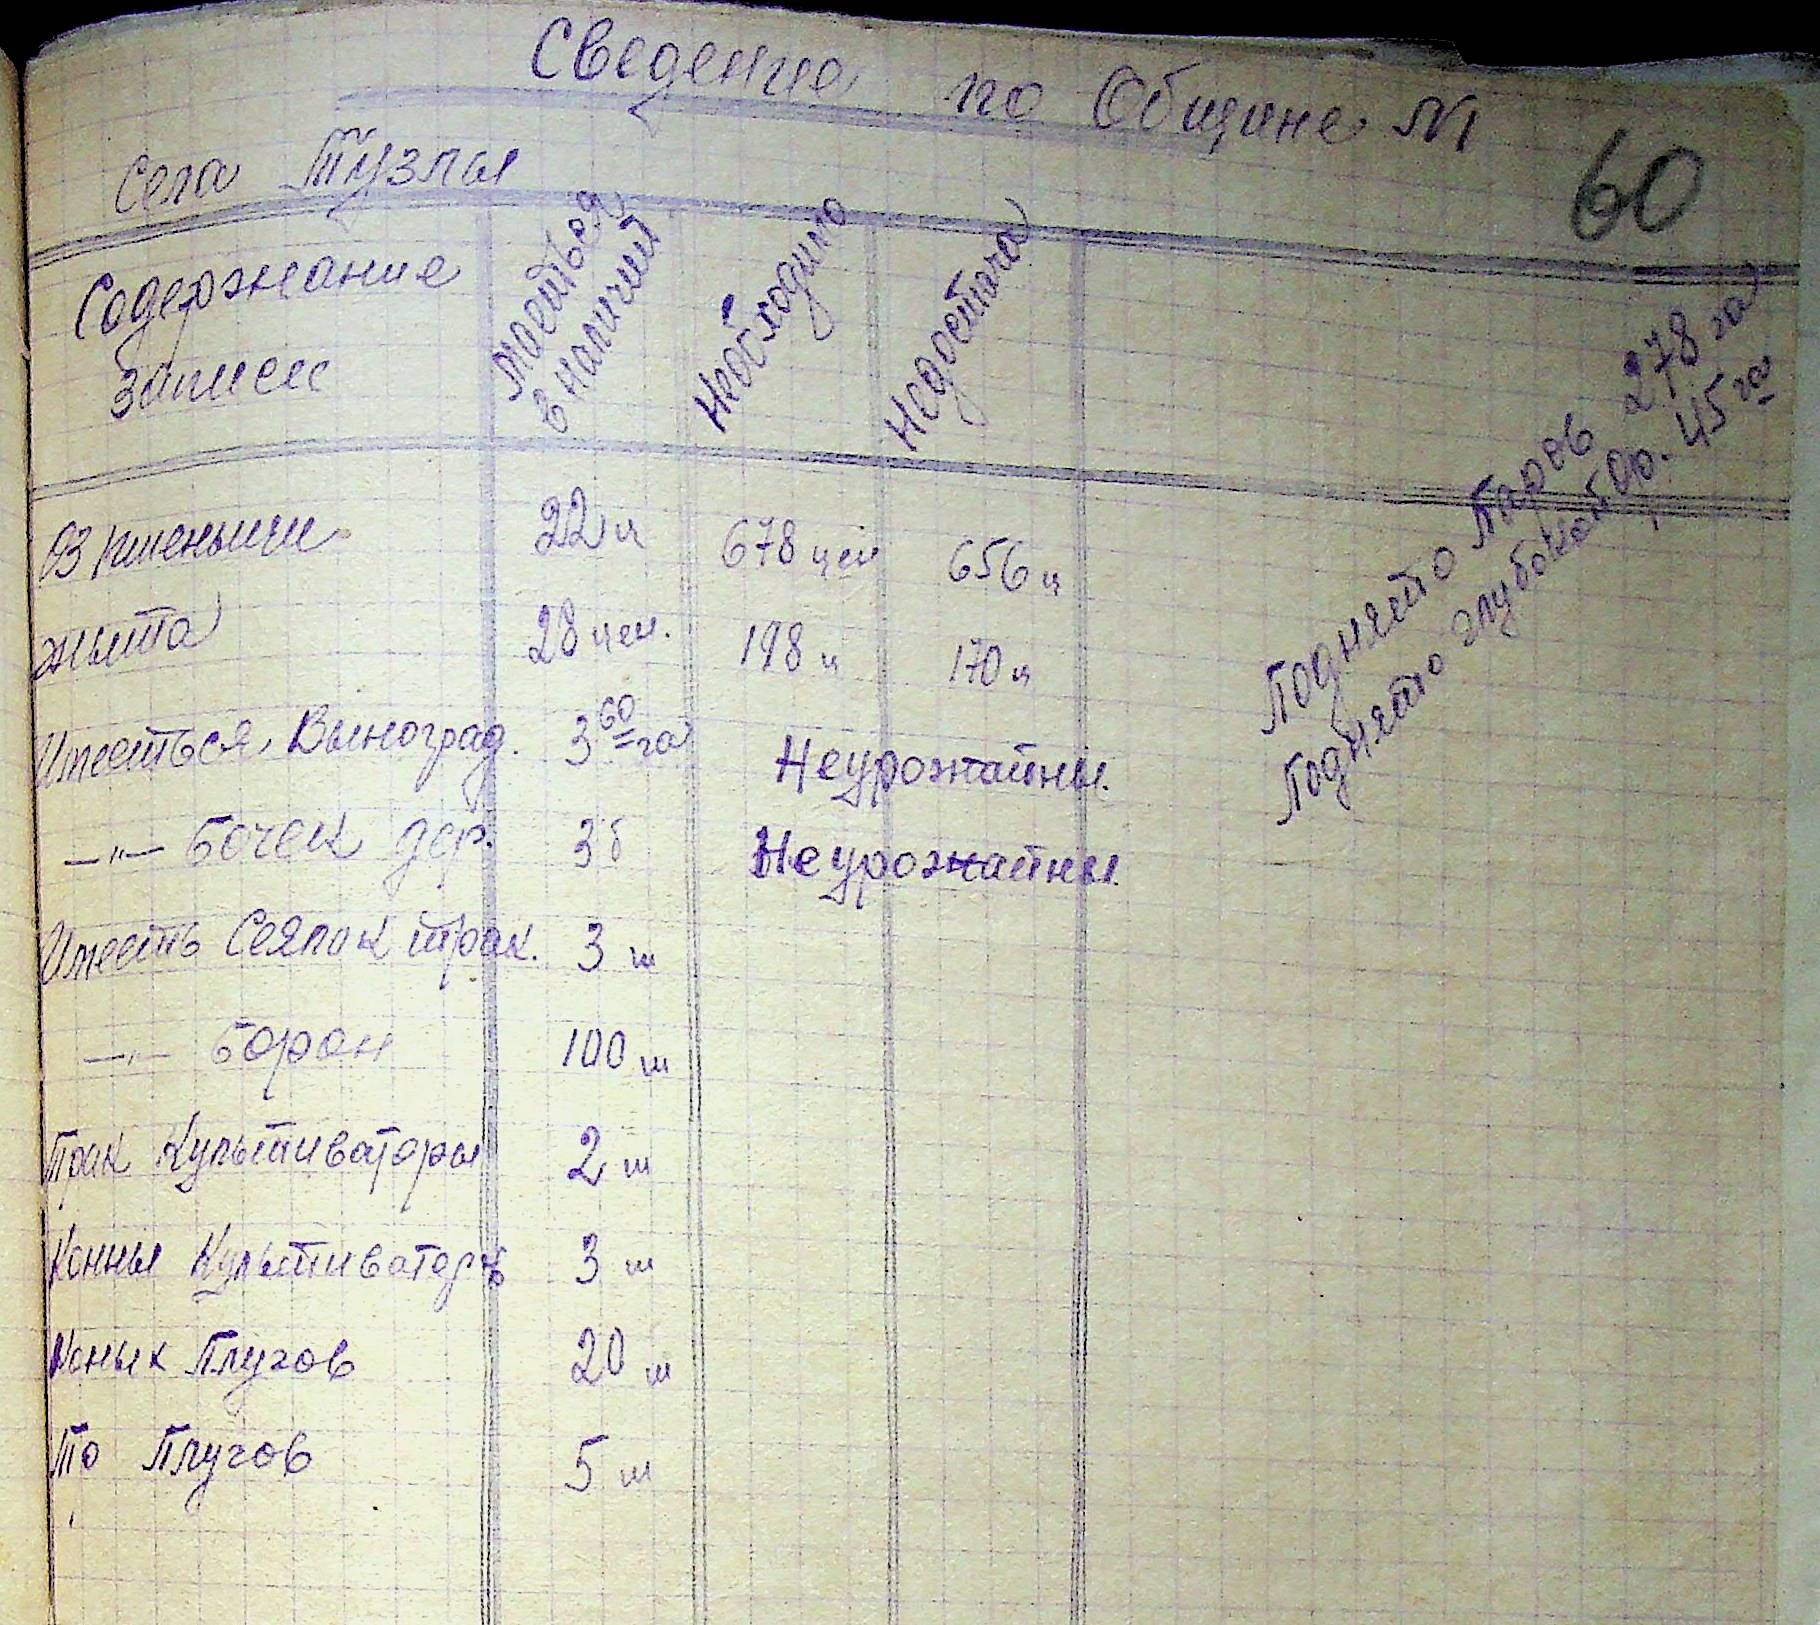 Сведение по Общине №1
60
села Тузлы
Содержание записи
Имеиться в наличии
Необходимо
Недостача
Оз пшеныци 22 ц 678 цен 656 ц
жыта 28 цен. 198 ц 170 ц
Имеиться Выноград. 3 60 га Неурожайны.
—"— Бочек дер. 3 б Неурожайны.
Имееть Сеялок трак. 3 ш
—"— Борон 100 ш
Трак Культиваторы 2 ш
Конны Культиваторы 3 ш
Коных Плугов 20 ш
То Плугов 5 ш
Поднято Паров 278 га
Поднято глубокой 45 га